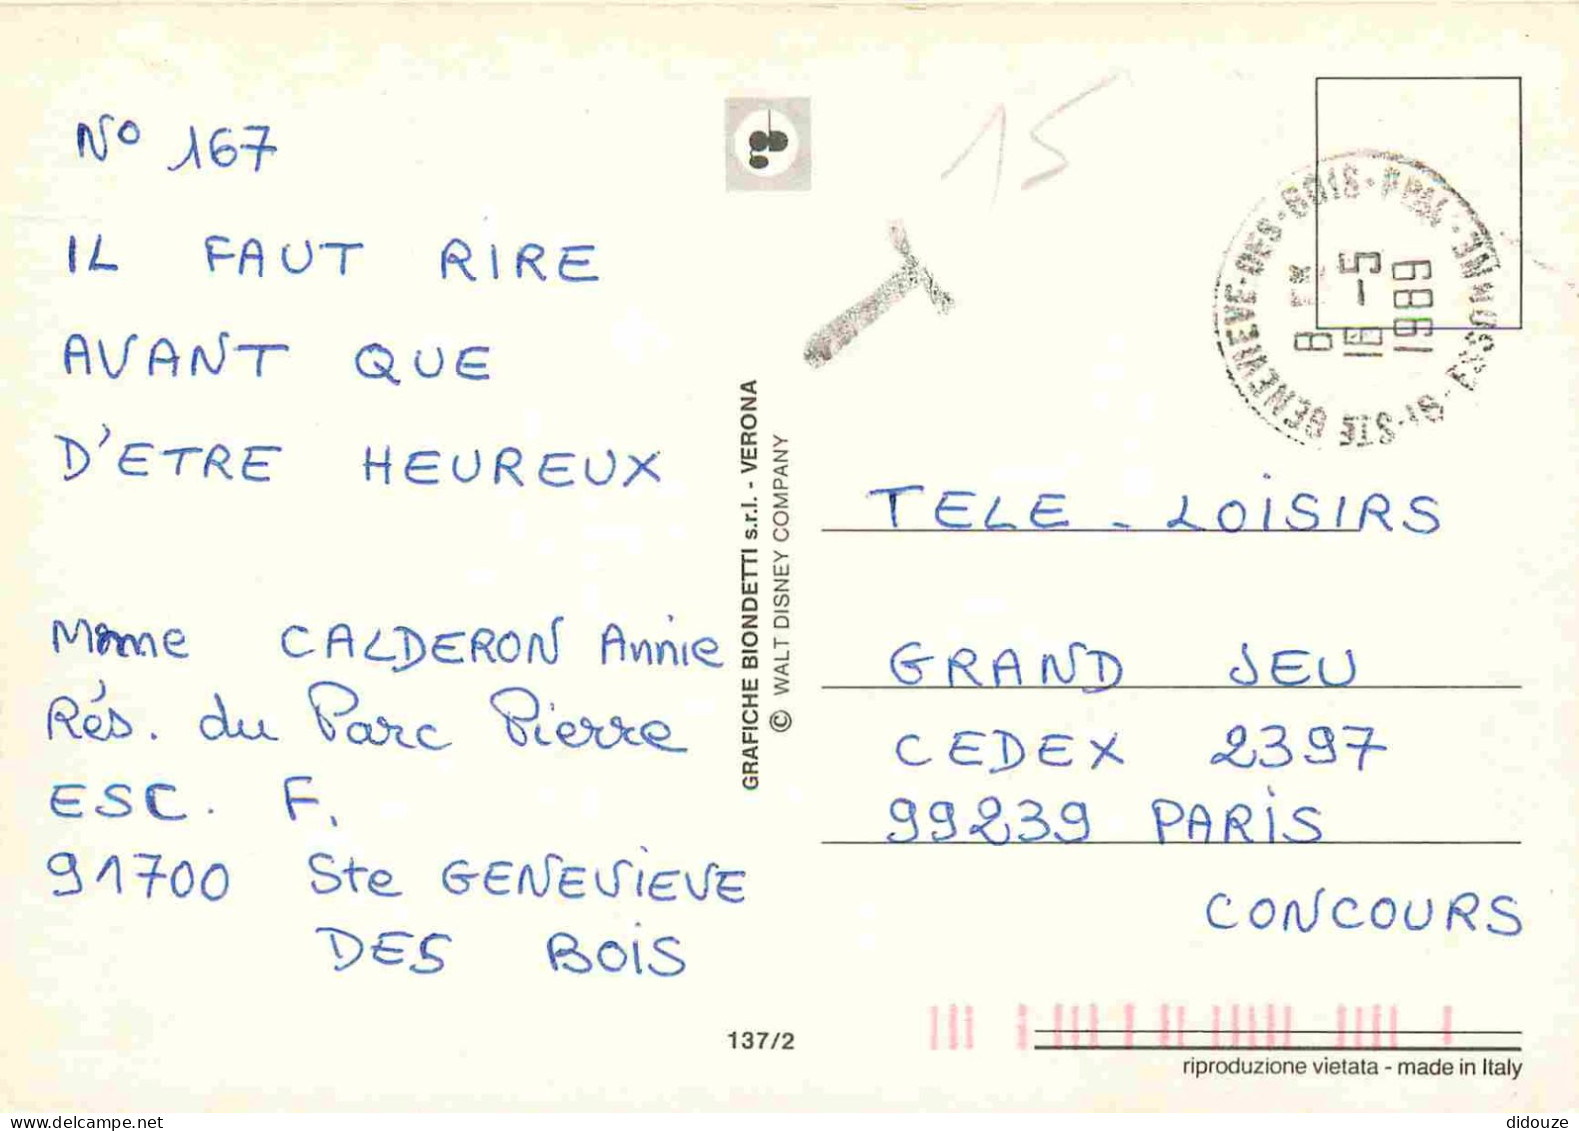 N° 167
IL FAUT RIRE
AVANT QUE
D'ETRE HEUREUX
Mme CALDERON Annie
Rés. du Parc Pierre
ESC. F.
91700 Ste GENEVIEVE
DES BOIS
GRAFICHE BIONDETTI s.r.l. - VERONA
© WALT DISNEY COMPANY
137/2
15
T
STE GENEVIEVE-DES-BOIS · PPAL
16 -5
1989
ESSONNE
TELE - LOISIRS
GRAND JEU
CEDEX 2397
99239 PARIS
CONCOURS
riproduzione vietata - made in Italy
didouze